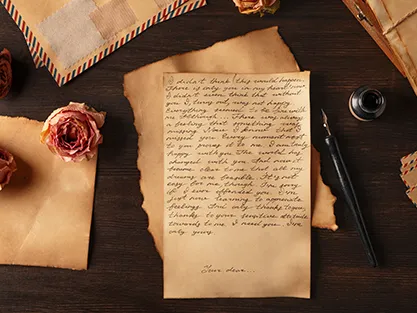 I didn't think this would happen.
There is only you in my heart now.
I didn't even think that without
you I
Everything seemed to be fine with
me. Although... There was always
a feeling that something was
missing. Now I know that I
missed you. Every moment next
to you
happy with you. The world has
changed with you. And most
become clear to me that all my
dreams are It's not
easy for me, though. I'm sorry
if I ever offended you. I'm
just now learning to appreciate
feelings. And only thanks to you,
thanks to your sensitive attitude
towards me. I need you. I'm
only yours.
Your dear...